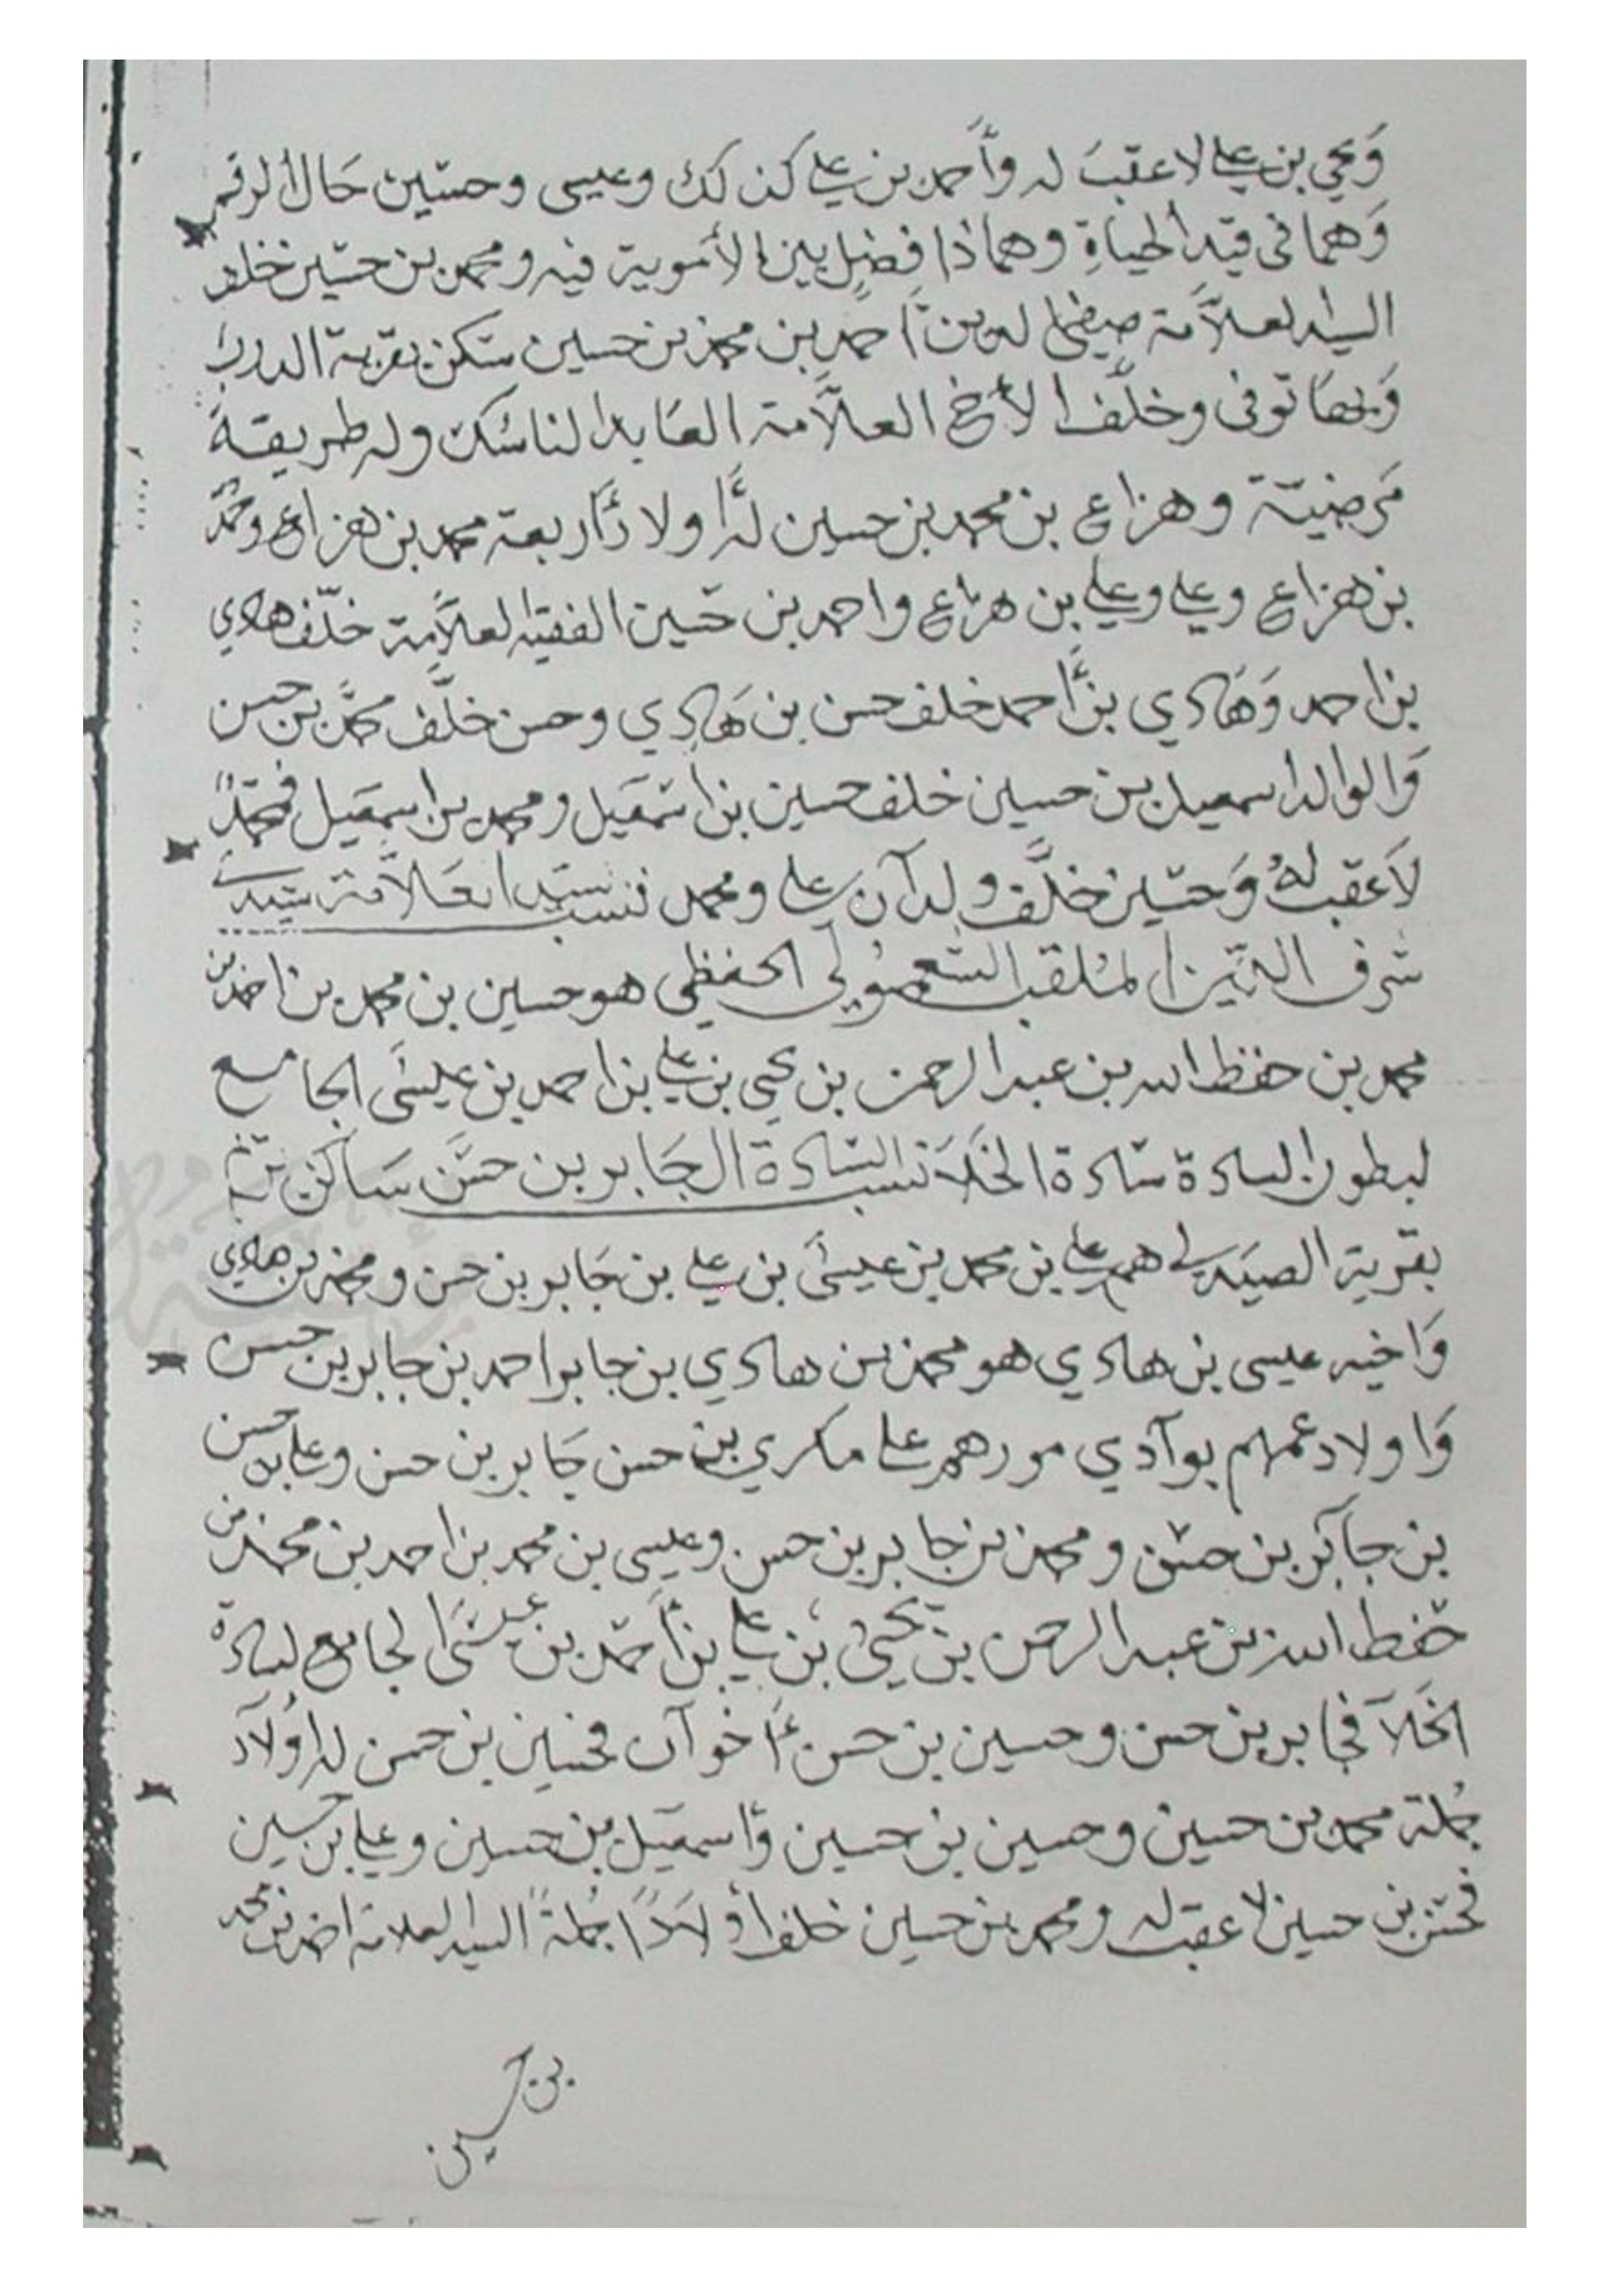 وَيحي بن علي لا عقبَ له وأحمد بن علي كذلك وعيسى وحسين حَال الرقم
وَهما في قيد الحياةِ وهما ذا فضلٍ بين الأموية فيه ومحمد بن حسين خلف
السيد العلاّمة صفي الدين أحمد بن محمد بن حسين سكن بقرية الدرب
وَبها توفى وخلَّف الأخ العلاَّمة العَابد الناسك وله طريقة
مَرضيّة وهزاع بن محمد بن حسين لهُ أولادٌ أربعة محمد بن هزاع وحمد
بن هزاع وعلي وعلي بن هزاع واحمد بن حَسين الفقيه العلاَّمة خلّف هادي
بن احمد وَهَادي بن أحمد خلف حسن بن هَادي وحسن خلَّف محمَّد بن حسن
وَالوالد اسمعيل بن حسين خلف حسين بن اسمَعيل ومحمد بن اسمعيل فمحمّدٌ
لاَ عقب لهُ وَحسَين خلَّف ولدَآن علي ومحمد نسب سيّد العَلاّمة سيّد
شرف الدّين الملقب الحفظي هو حسين بن محمد بن احمد بن
محمد بن حفظ الله بن عبد الرحمن بن يحي بن علي بن احمد بن عيسَى الجامع
لبطون السادة سَادة الخَلاَ نسب السَّادة الجَابر بن حسَن سَاكن
بقرية هم علي بن محمد بن عيسَى بن علي بن جَابر بن حسن ومحمد بن هادي
وَاخيه عيسى بن هادي هو محمد بن هادي بن جابر احمد بن جابر بن حسن
وَاولاد عمهم بوآدي مور هم علي مكري بن حسن جَابر بن حسن وعلي بن حسن
بن جَابَر بن حسَن ومحمد بن جابر بن حسن وعيسى بن محمد بن احمد بن محمد بن
حفظ الله بن عبد الرحمن بن يَحيىٰ بن علي بن أحمَد بن عيسَى الجامع لسادة
الخَلاَ فجابر بن حسن وحسين بن حسن أَخوآن فحسين بن حسن له أولآد
جُملة محمد بن حسين وحسين بن حسين وَأسمعَيل بن حسين وعلي بن حسين
بن حسين لا عقب له ومحمد بن حسين خلف أولاَدًا جُملةً السيد العلامة احمد بن محمد
بن حسين